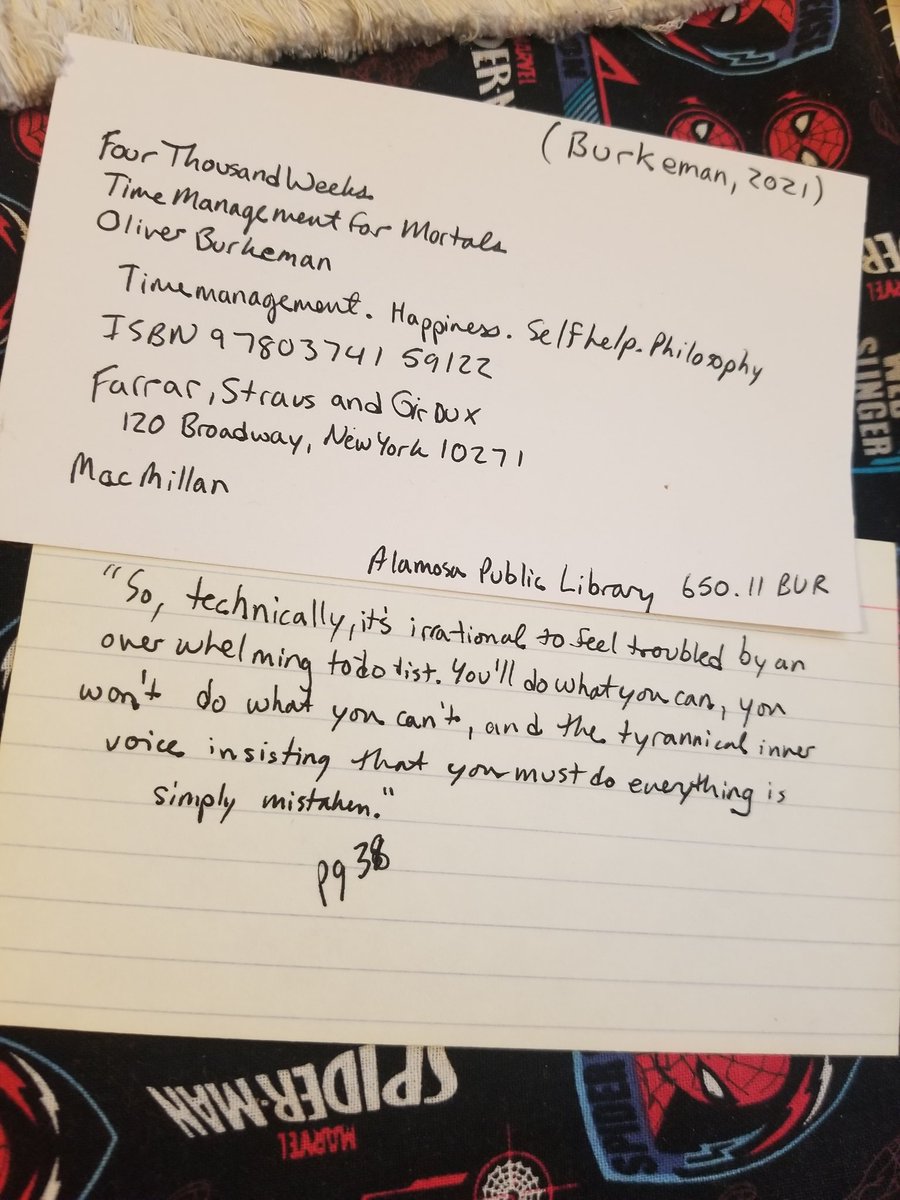 (Burkeman, 2021)
Four Thousand Weeks
Time Management for Mortals
Oliver Burkeman
Time management. Happiness. Self help. Philosophy
ISBN 9780374159122
Farrar, Straus and Giroux
120 Broadway, New York 10271
MacMillan
Alamosa Public Library 650.11 BUR
"So, technically, it's irrational to feel troubled by an
over whelming to do list. You'll do what you can, you
won't do what you can't, and the tyrannical inner
voice insisting that you must do everything is
simply mistaken."
pg 38
MARVEL
SLINGER
SPIDER-MAN
MARVEL